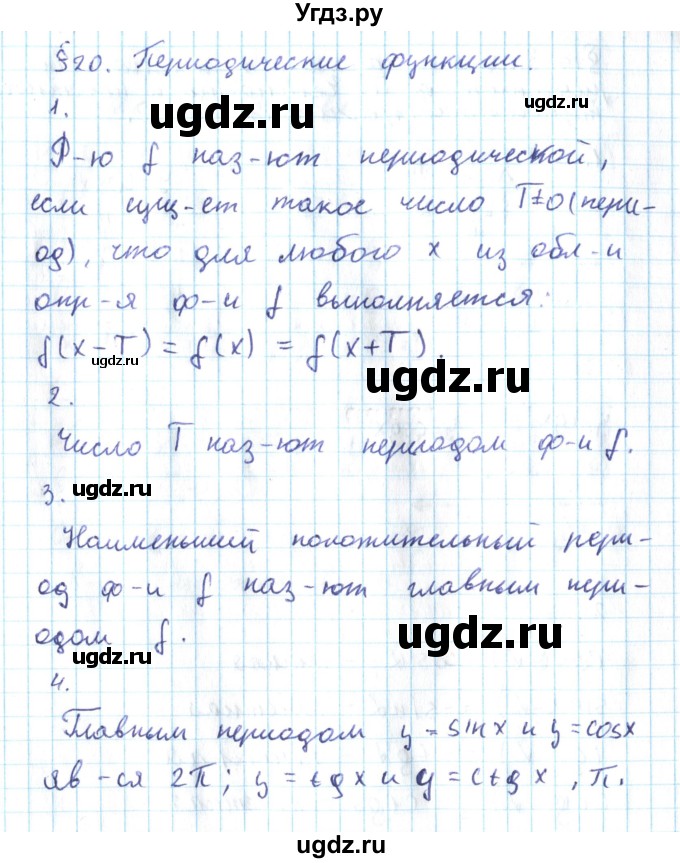 Угдз.ру
§20. Периодические функции.
ugdz.ru
1.
ugdz.ru
Ф-ю f наз-ют периодической,
если сущ-ет такое число T≠0 (пери-
од), что для любого x из обл-и
опр-я ф-и f выполняется:
f(x-T) = f(x) = f(x+T).
ugdz.ru
ugdz.ru
2.
Число T наз-ют периодом ф-и f.
ugdz.ru
3.
Наименьший положительный пери-
од ф-и f наз-ют главным пери-
одом f.
ugdz.ru
ugdz.ru
4.
Главным периодом y = sin x и y = cos x
яв-ся 2π; y = tg x и y = ctg x, π.
ugdz.ru